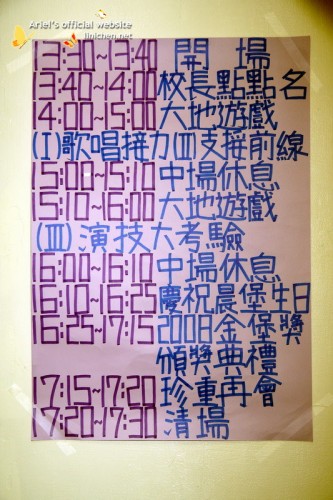 Ariel's official website
linichen.net
13:30~13:40 開場
3:40~4:00 校長點點名
4:00~15:00 大地遊戲
(I)歌唱接力(II)支接前線
15:00~15:10 中場休息
15:10~16:00 大地遊戲
(III)演技大考驗
16:00~16:10 中場休息
16:10~16:25 慶祝晨堡生日
16:25~17:15 2008金堡獎
頒獎典禮
17:15~17:20 珍重再會
17:20~17:30 清場